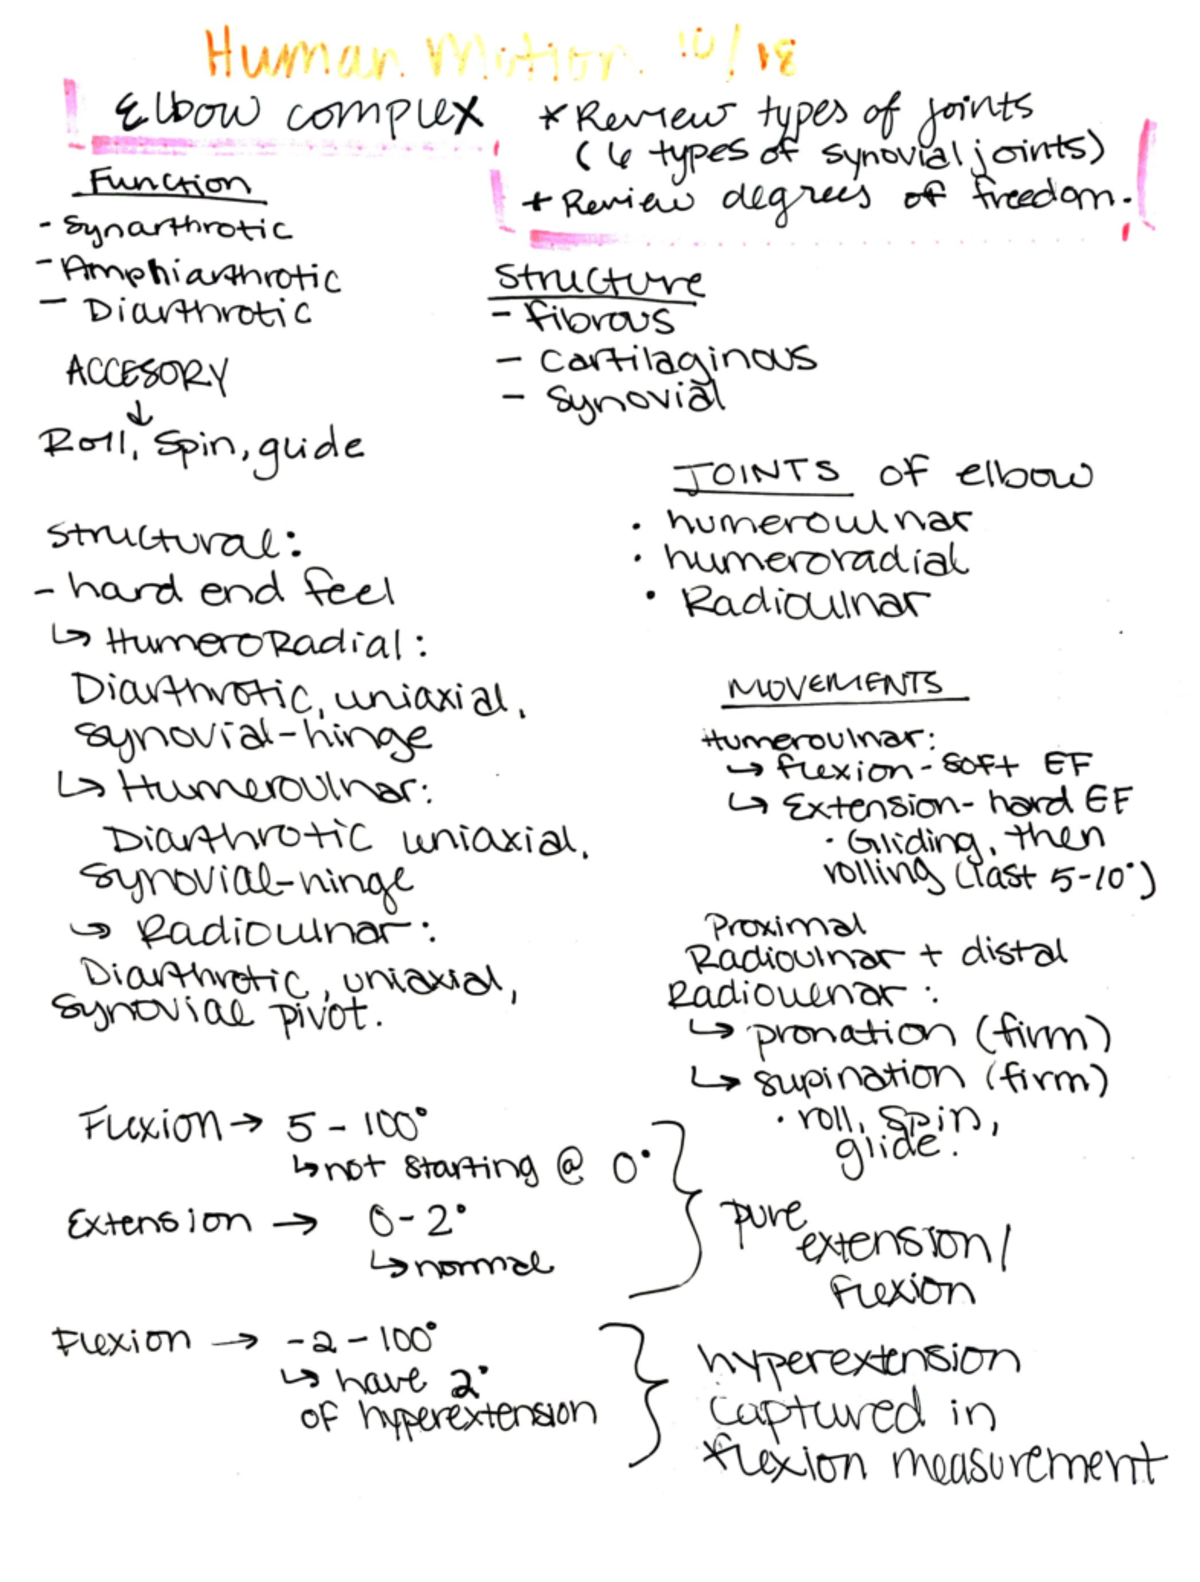 Human Motion 10/18
Elbow complex
* Review types of joints
(6 types of synovial joints)
* Review degrees of freedom.
Function
- Synarthrotic
- Amphiarthrotic
- Diarthrotic
Structure
- fibrous
- cartilaginous
- synovial
ACCESORY
↓
Roll, Spin, glide
JOINTS of elbow
• humeroulnar
• humeroradial
• Radioulnar
Structural:
- hard end feel
↳ HumeroRadial:
Diarthrotic, uniaxial,
synovial-hinge
↳ Humeroulnar:
Diarthrotic uniaxial,
synovial-hinge
↳ Radioulnar:
Diarthrotic, uniaxial,
synovial pivot.
MOVEMENTS
Humeroulnar:
↳ flexion - soft EF
↳ Extension - hard EF
• Gliding, then
rolling (last 5-10°)
Proximal
Radioulnar + distal
Radioulnar:
↳ pronation (firm)
↳ supination (firm)
• roll, spin,
glide.
Flexion → 5 - 100°
↳ not starting @ 0°
Extension → 0-2°
↳ normal
pure
extension/
flexion
Flexion → -2 - 100°
↳ have 2°
of hyperextension
hyperextension
captured in
flexion measurement